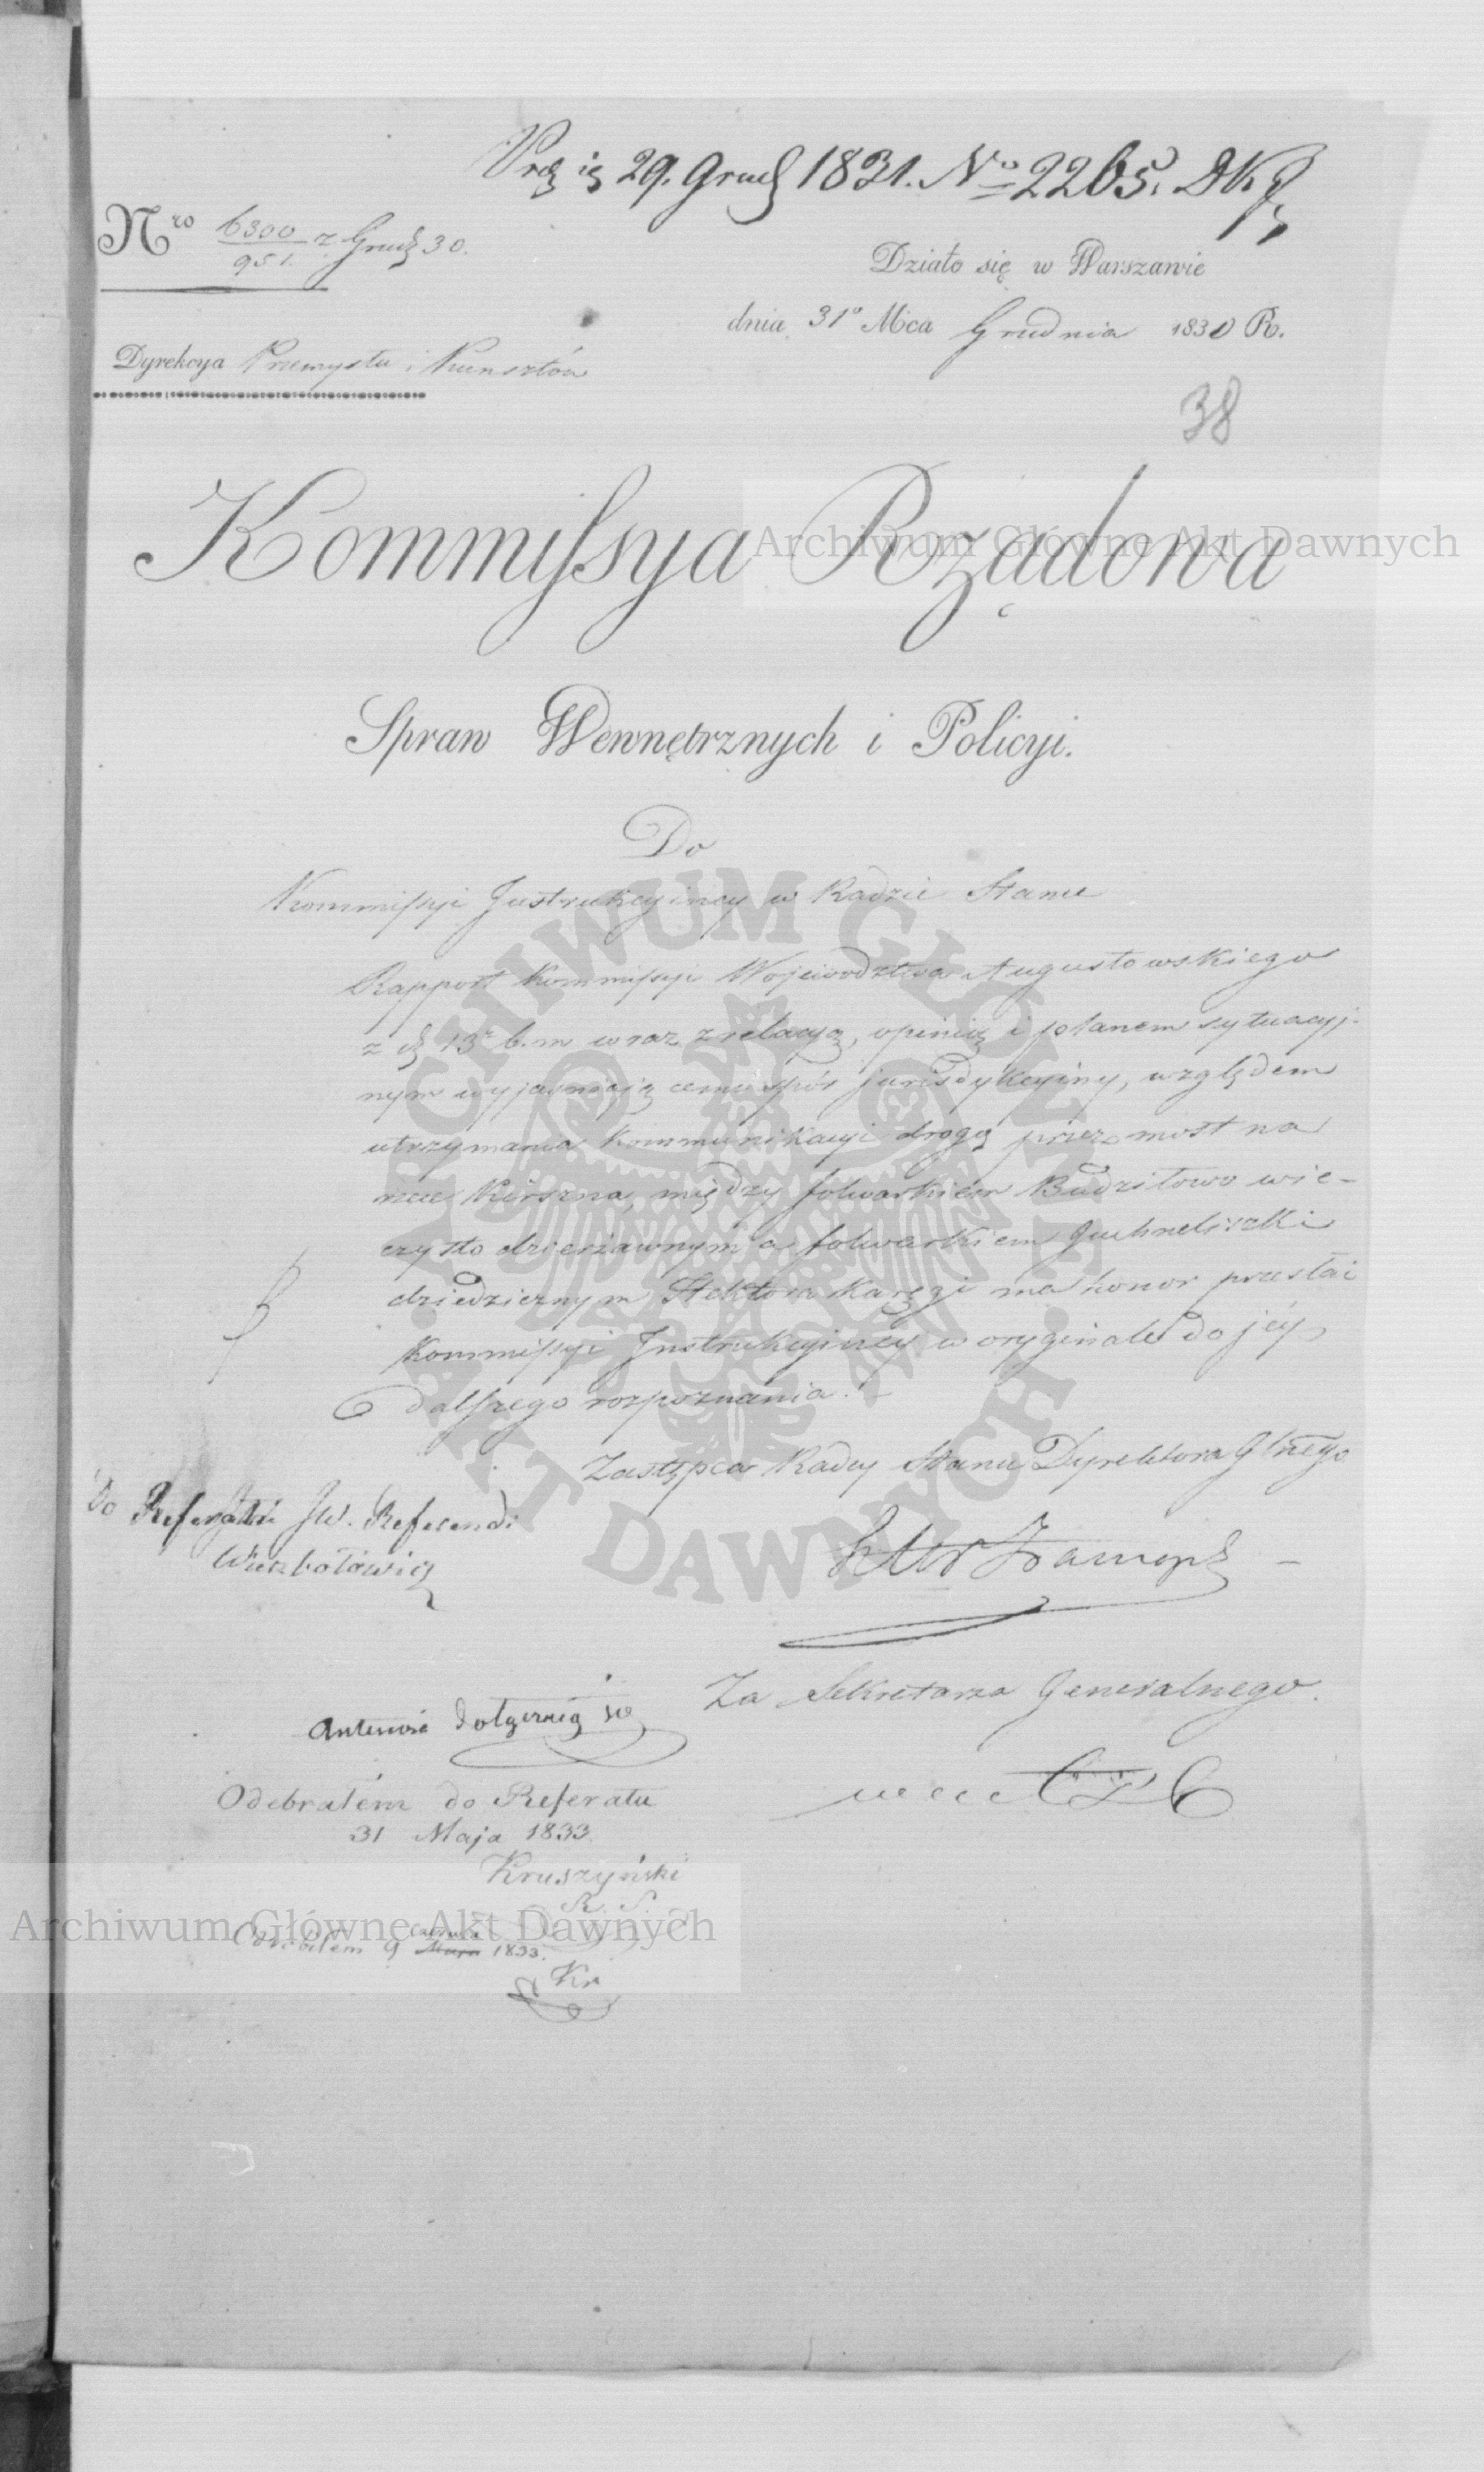 29. Grud 1831. No 2265.
Nro 6300/951. z Grud 30.
Działo się w Warszawie
dnia 31o Mca Grudnia 1830 R.
Dyrekcya Przemysłu i Kunsztów
38
Kommissya Rządowa
Archiwum Główne Akt Dawnych
Spraw Wewnętrznych i Policyi.
Do
Kommissyi Instrukcyiney w Radzie Stanu
Rapport Kommissyi Województwa Augustowskiego
z d. 13o b. m. wraz z relacyą, opinią i planem sytuacyj-
nym wyjaśniającemi spór jurisdykcyiny, względem
utrzymania kommunikacyi drogą przez most na
rzece Kirszna, między folwarkiem Budzitowo wie-
czysto dzierżawnym a folwarkiem
dziedzicznym Hektora Karęgi ma honor przesłać
Kommissyi Instrukcyiney w oryginale do jéj
dalszego rozpoznania.
Zastępca Radcy Stanu Dyrektora Glnego
Do Referatu JW. Referend:
Wierzbołowicz
Za Sekretarza Generalnego.
dołączaią się
Odebrałem do Referatu
31 Maja 1833.
Kruszyński
R. S.
Archiwum Główne Akt Dawnych
9 Czerwca Maja 1833.
Kr
ARCHIWUM GŁÓWNE AKT DAWNYCH